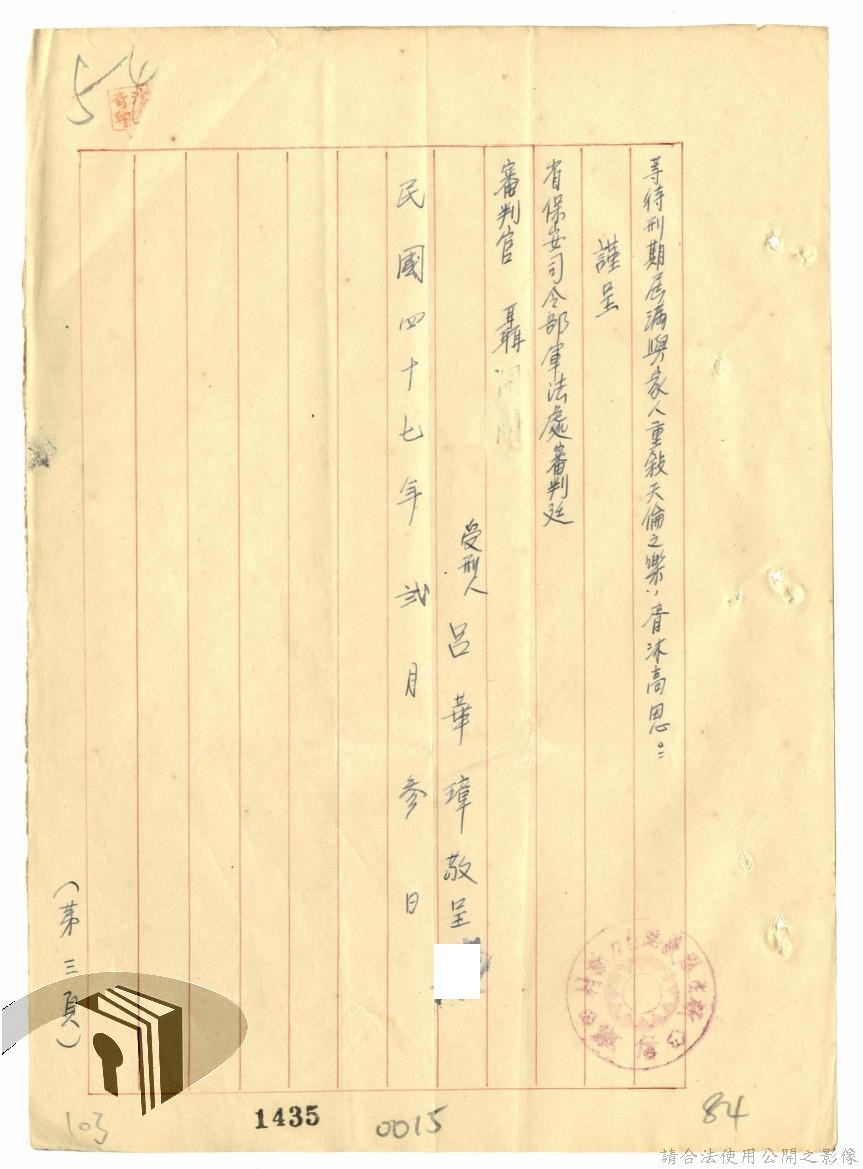 等待刑期屆滿與家人重敍天倫之樂，育沐高恩。
謹呈
省保安司令部軍法處審判廷
審判官 聶
受刑人 呂華璋敬呈
民國四十七年貳月參日
（第三頁）
54
103
1435
0015
84
請合法使用公開之影像